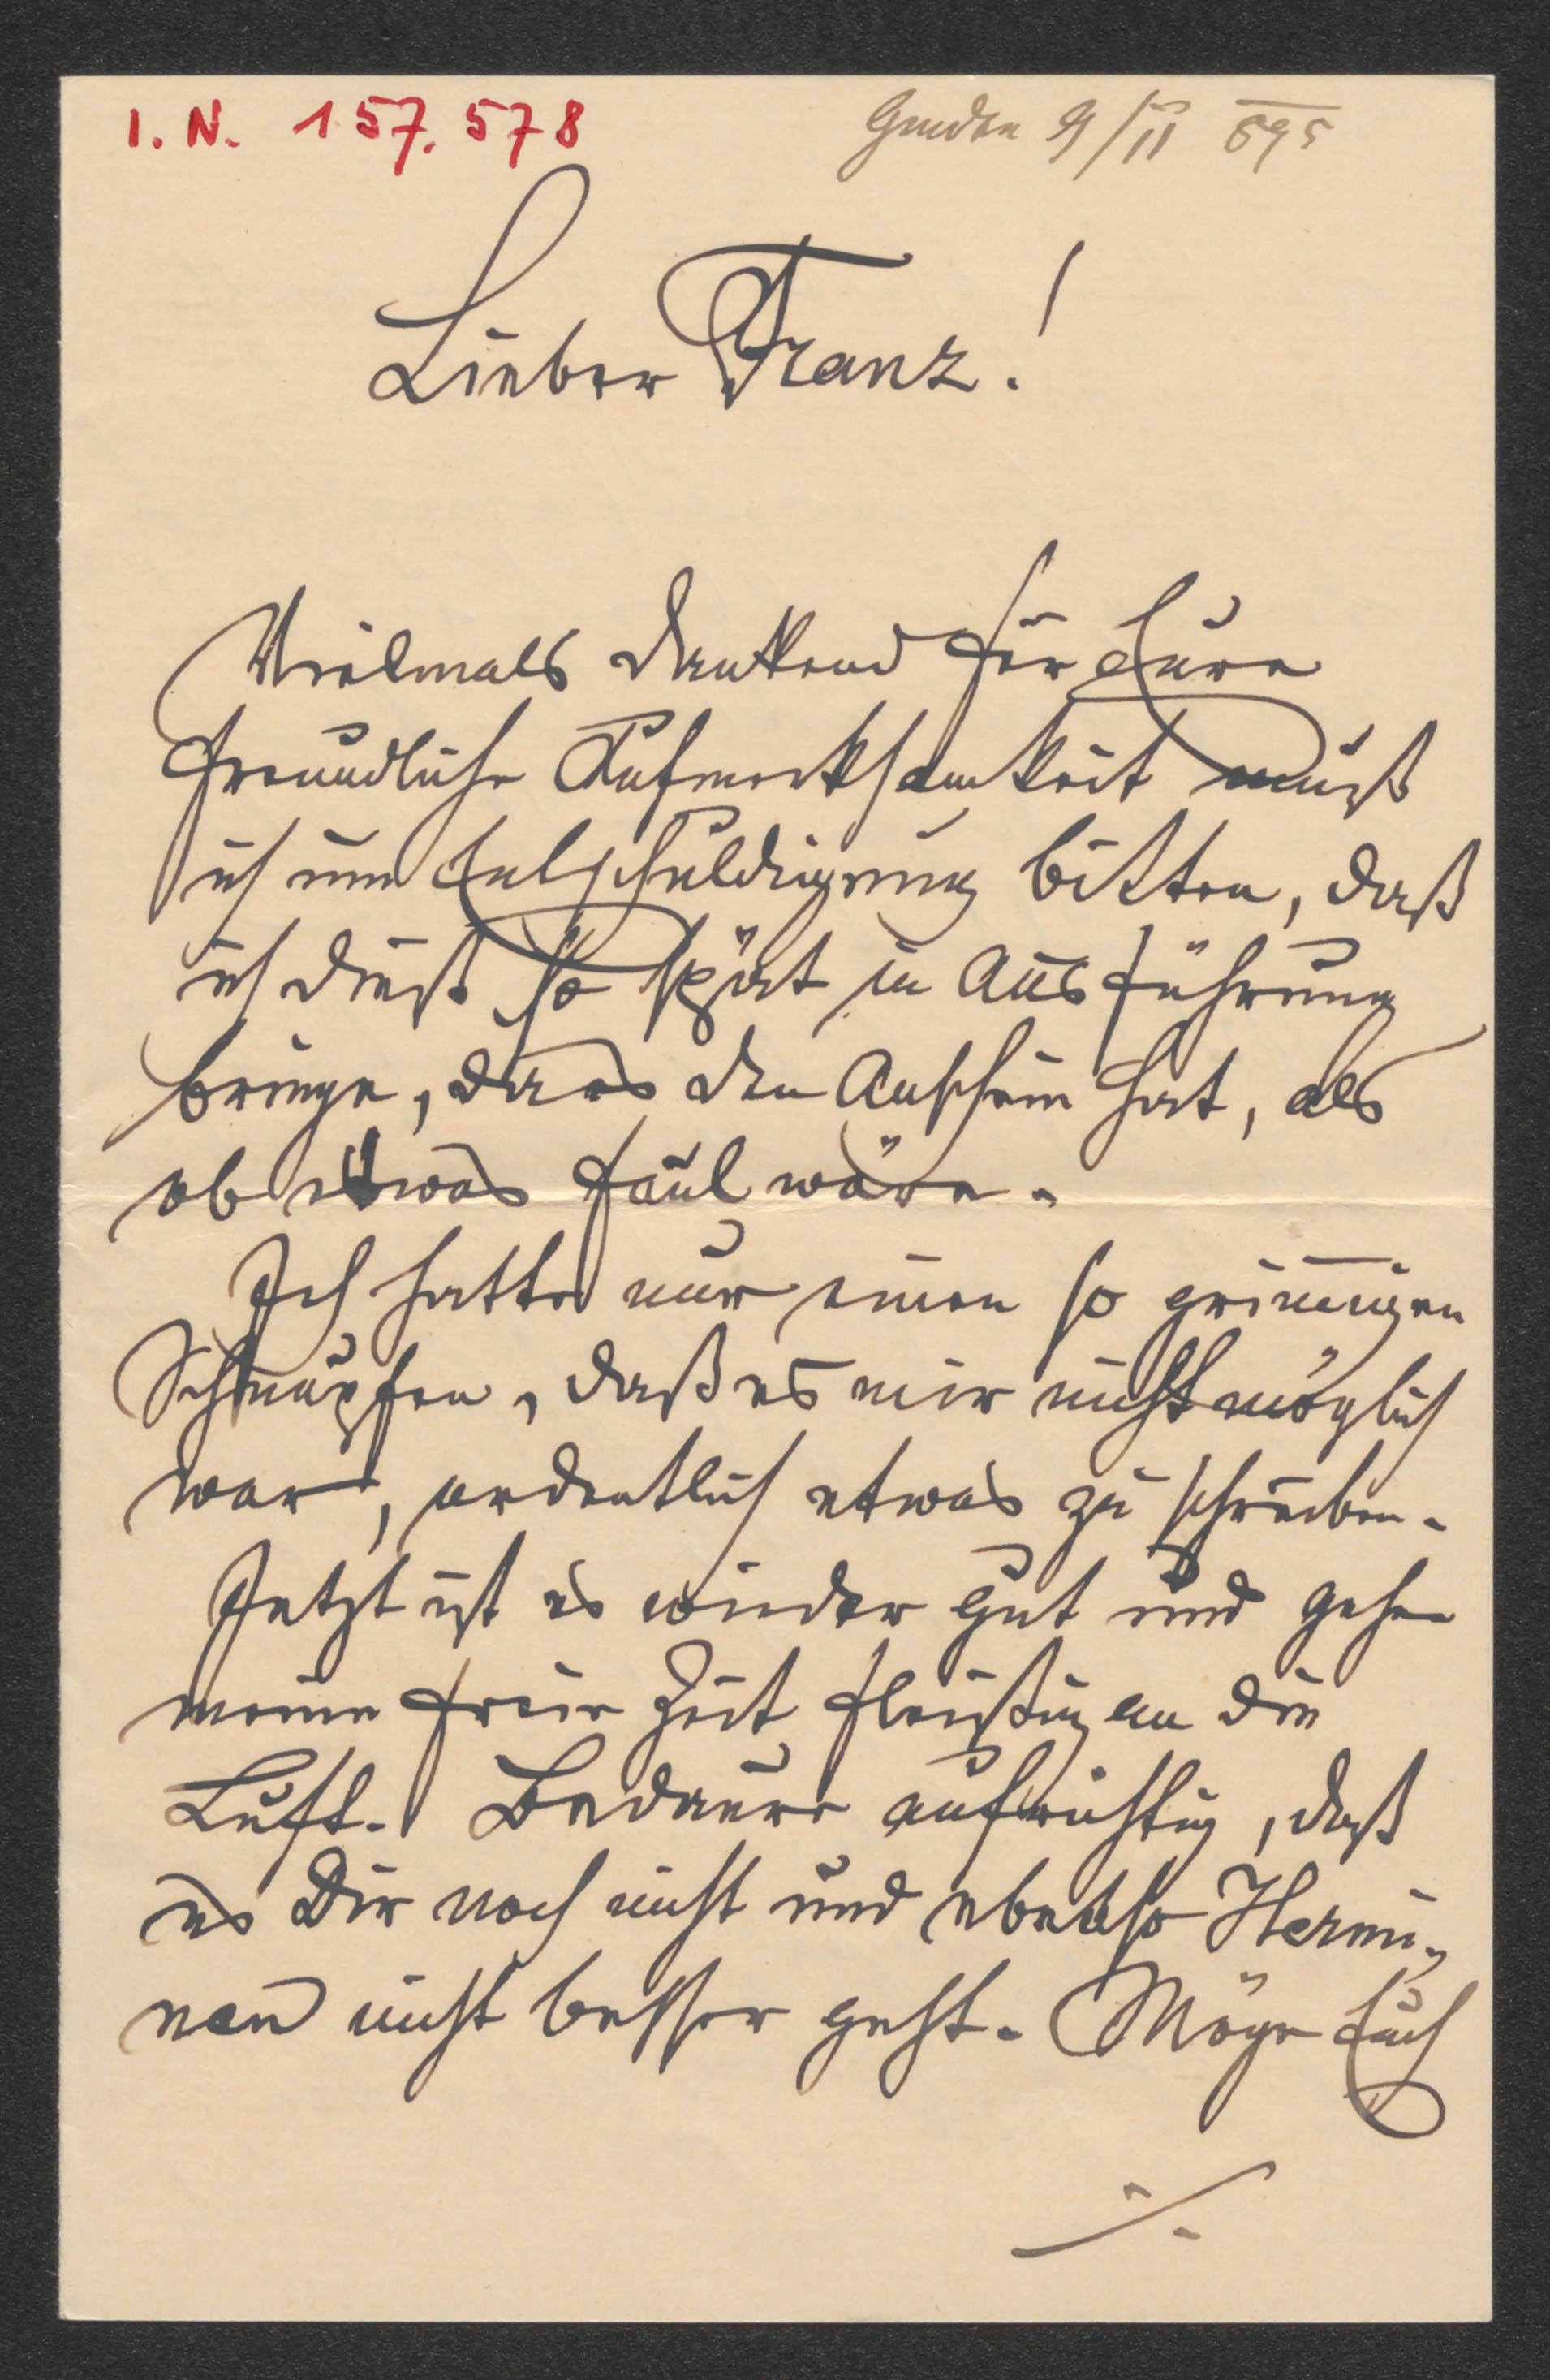 I. N. 157.578
Gmden 9/II 895
Lieber Franz!
Vielmals dankend für Eure
freundliche Aufmerksamkeit muß
ich um Entschuldigung bitten, daß
ich dieß so spät in Ausführung
bringe, da es den Anschein hat, als
ob etwas faul wäre.
Ich hatte nur einen so grim̅igen
Schnupfen, daß es mir nicht möglich
war, ordentlich etwas zu schreiben.
Jetzt ist es wieder gut und gehe
meine freie Zeit fleißig an die
Luft. Bedaure aufrichtig, daß
es Dir noch nicht und ebenso Hermi-
nen nicht besser geht. Möge Euch
./.